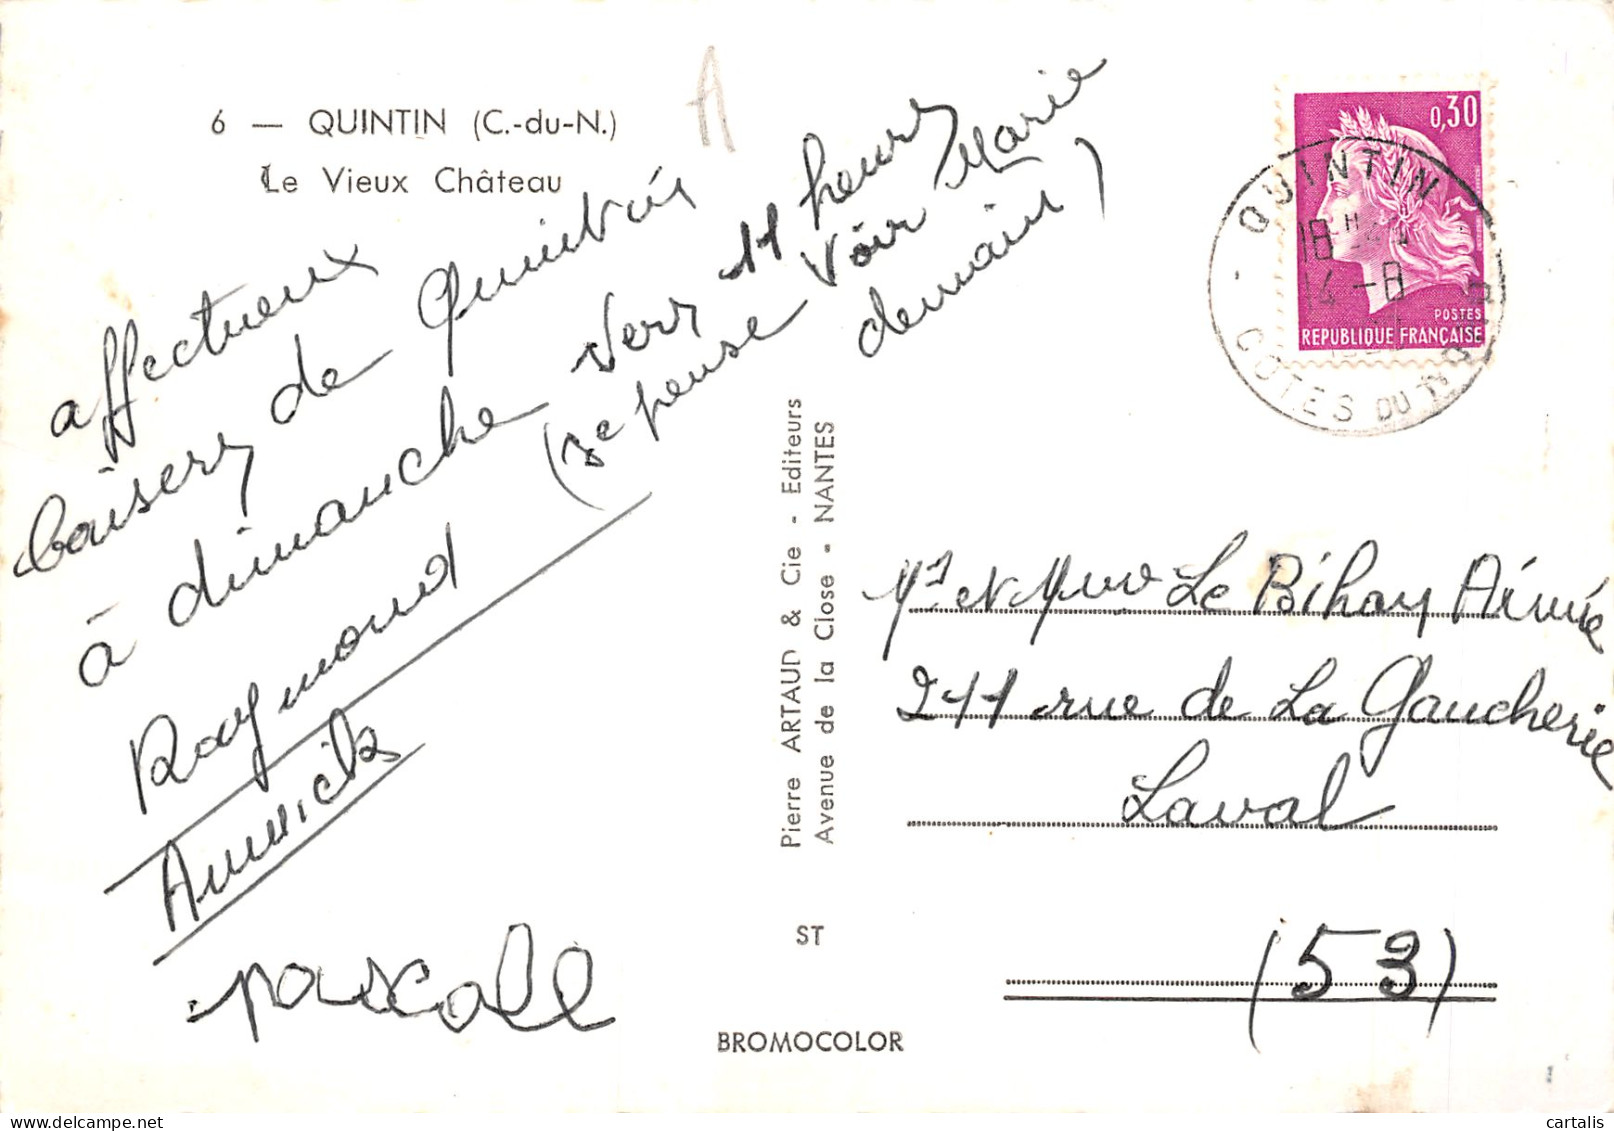 6 — QUINTIN (C.-du-N.)
Le Vieux Château
A
affectueux
baisers de Quintin
à dimanche vers 11 heures
(Je pense voir Marie
demain)
Raymond
Annick
pascale
Pierre ARTAUD & Cie - Editeurs
Avenue de la Close - NANTES
ST
BROMOCOLOR
0,30
POSTES
REPUBLIQUE FRANÇAISE
QUINTIN
18H
14-8
COTES DU NORD
Mr et Mme Le Bihan Aimé
211 rue de La Gaucherie
Laval
(53)
cartalis
www.delcampe.net